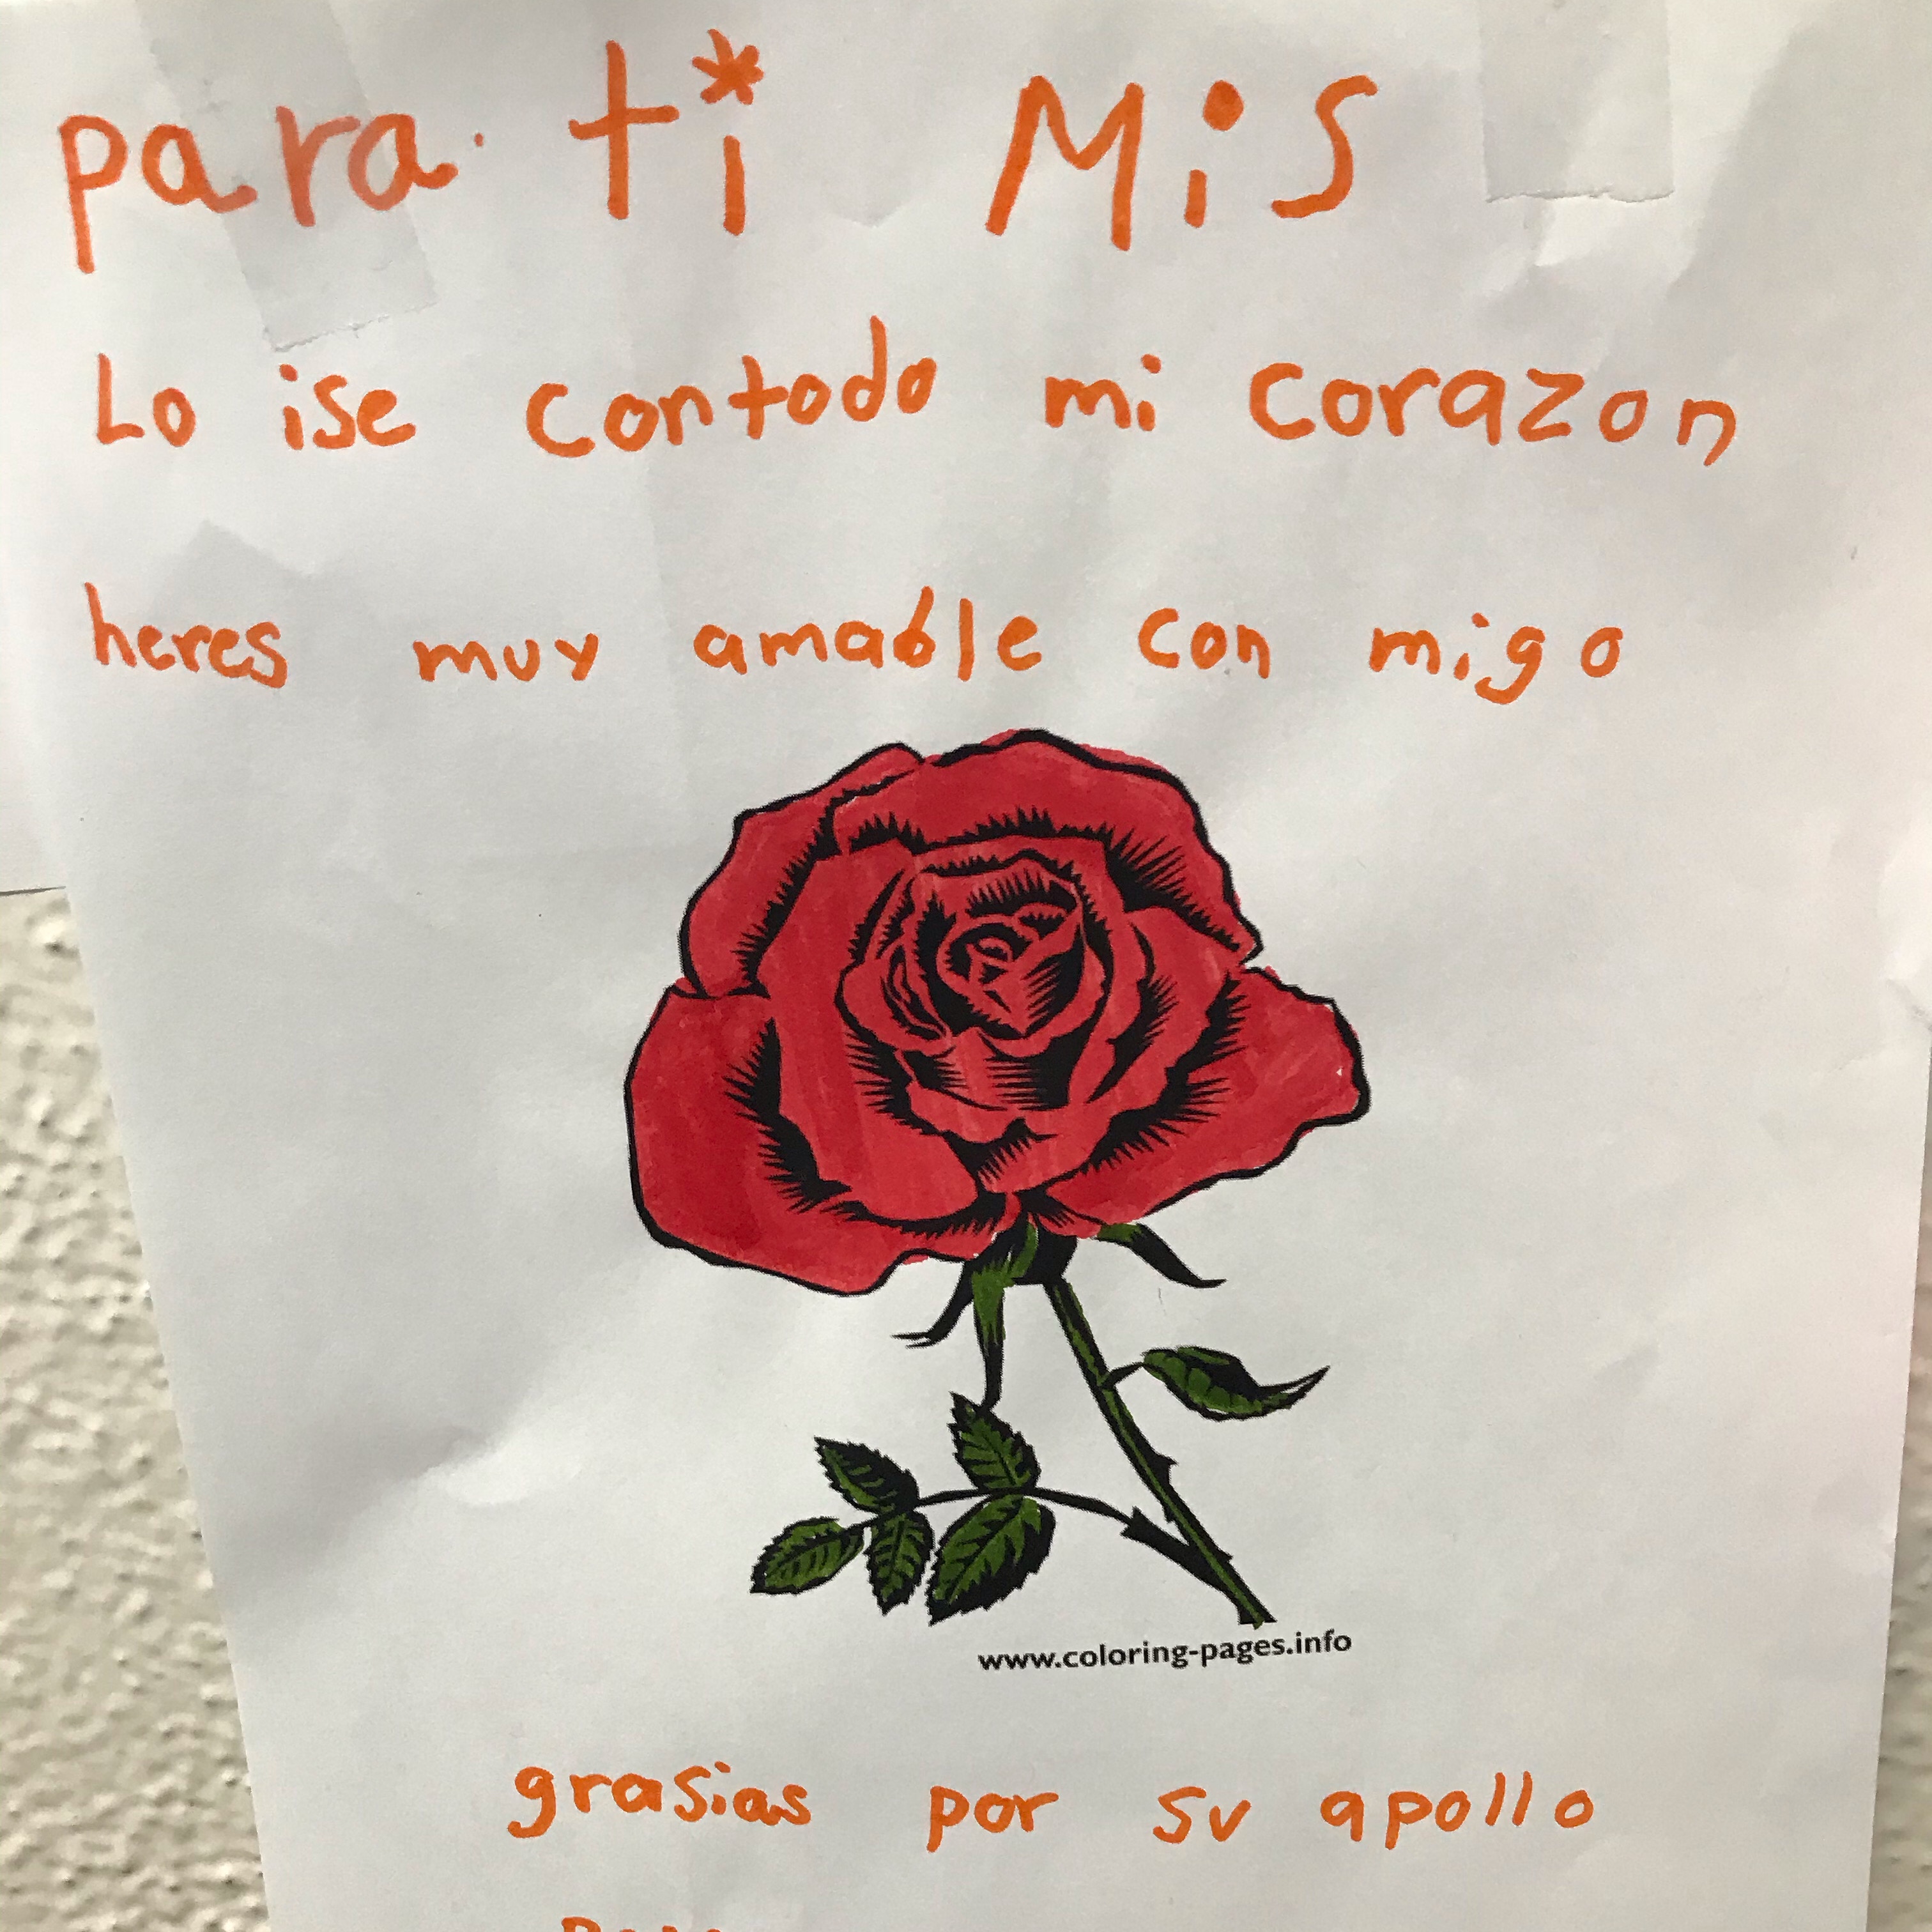 para ti Mis
Lo ise contodo mi corazon
heres muy amable con migo
www.coloring-pages.info
grasias por su apollo